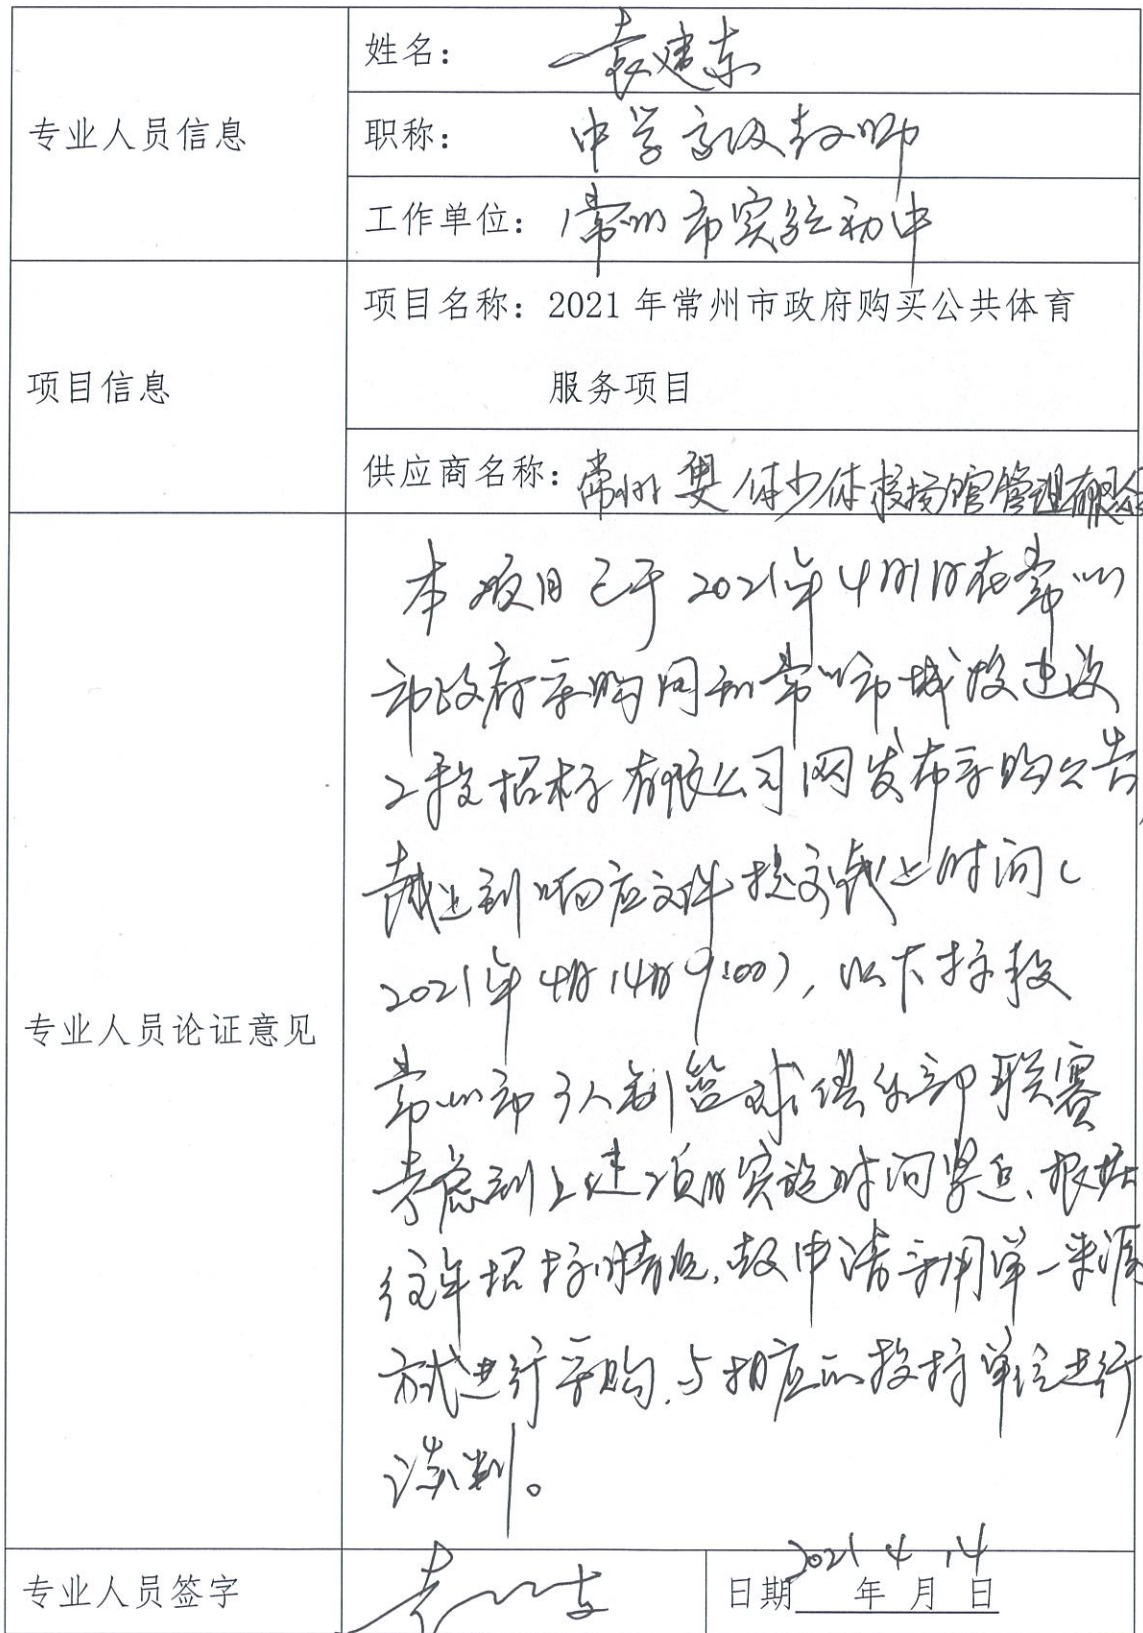 专业人员信息
姓名: 袁建东
职称: 中学高级教师
工作单位: 常州市实验初中
项目信息
项目名称: 2021年常州市政府购买公共体育
服务项目
供应商名称: 常州奥体少体校场馆管理有限公
专业人员论证意见
本项目已于2021年4月1日在常州
市政府采购网和常州市城投建设
工程招标有限公司网发布采购公告,
截止到响应文件提交截止时间(
2021年4月14日9:00), 以下标段
常州市3人制篮球俱乐部联赛
考虑到上述项目实施时间紧迫、根据
往年招标情况, 故申请采用单一来源
方式进行采购, 与相应的投标单位进行
谈判。
专业人员签字
日期 2021年4月14日